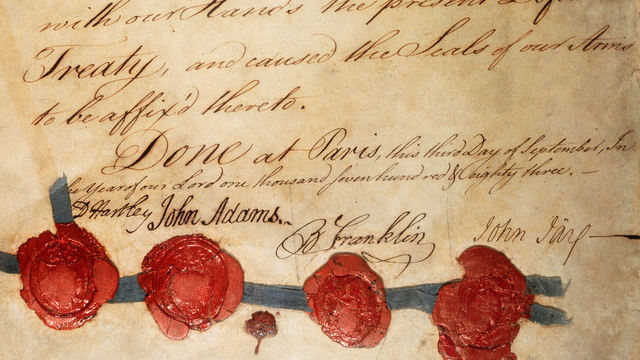 with our Hands the present Defin
Treaty, and caused the Seals of our Arms
to be affix'd thereto.
Done at Paris, this third Day of September, In
he Year of our Lord one thousand seven hundred & eighty three.—
D Hartley John Adams.. B Franklin John Jay—